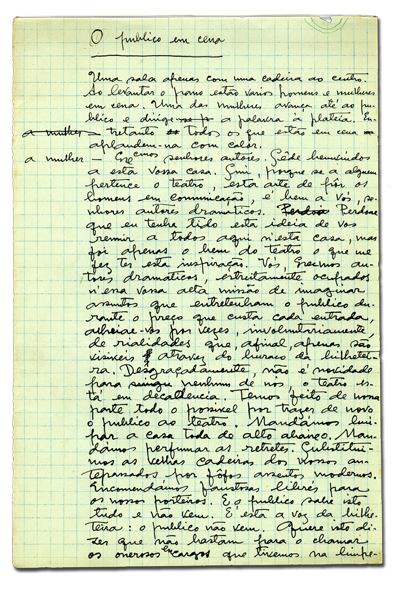 O publico em cena
Uma sala apenas com uma cadeira ao centro.
Ao levantar o pano estão varios homens e mulheres
em cena. Uma das mulheres avança até ao pu-
blico e dirige a palavra à plateia. En-
a mulher — tretanto todos os que estão em cena
aplaudem-na com calor.
a mulher — Ex.mos senhores autores. Sêde bemvindos
a esta vossa casa. Sim, porque se a alguem
pertence o teatro, esta arte de pôr os
homens em comunicação, é bem a vós, se-
nhores autores dramaticos. Perdoae
que eu tenha tido esta ideia de vos
reunir a todos aqui n'esta casa, mas
foi apenas o bem do teatro o que me
fez ter esta inspiração. Vós Ex.mos au-
tores dramaticos, estritamente ocupados
n'essa vossa alta missão de imaginar
assuntos que entretenham o publico du-
rante o preço que custa cada entrada,
alheiae-vos por vezes, involuntariamente,
de rialidades que, afinal, apenas são
visiveis atravez do buraco da bilhetei-
ra. Desgraçadamente, não é novidade
para nenhum de nós, o teatro es-
tá em decadencia. Temos feito de nossa
parte todo o possivel por trazer de novo
o publico ao teatro. Mandámos lim-
par a casa toda de alto abaixo. Man-
dámos perfumar as retretes. Substitui-
mos as velhas cadeiras dos nossos an-
tepassados por fôfos assentos modernos.
Encomendámos faustosas librés para
os nossos porteiros. E o publico sabe isto
tudo e não vem. E esta a voz da bilhe-
teira: o publico não vem. Quere isto di-
zer que não bastam para o chamar
os onerosos encargos que tivemos na limpe-